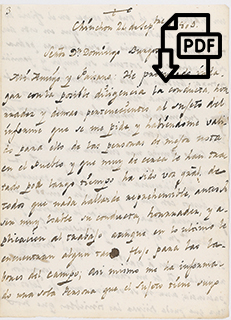 3
PDF
Chinchon 24 de Septre
Señor Dn. Domingo
Mi Amigo y
gar con la posible diligencia la conducta, hon
radez y demas pertenecientes al sujeto del
informe que se me pide y habiendome vali
do para ello de las personas de mejor nota
en el Pueblo y que muy de cerca lo han tra
tado por largo tiempo ha sido voz gral. de
todos que nada hallaban reprehensible, antes
bien muy laable su conducta, honradez, y a
plicacion al trabajo aunque en lo ultimo le
encuentran algun tanto flojo para las la
bores del campo; asi mismo me ha informa
do una sola Persona que el sujeto tiene